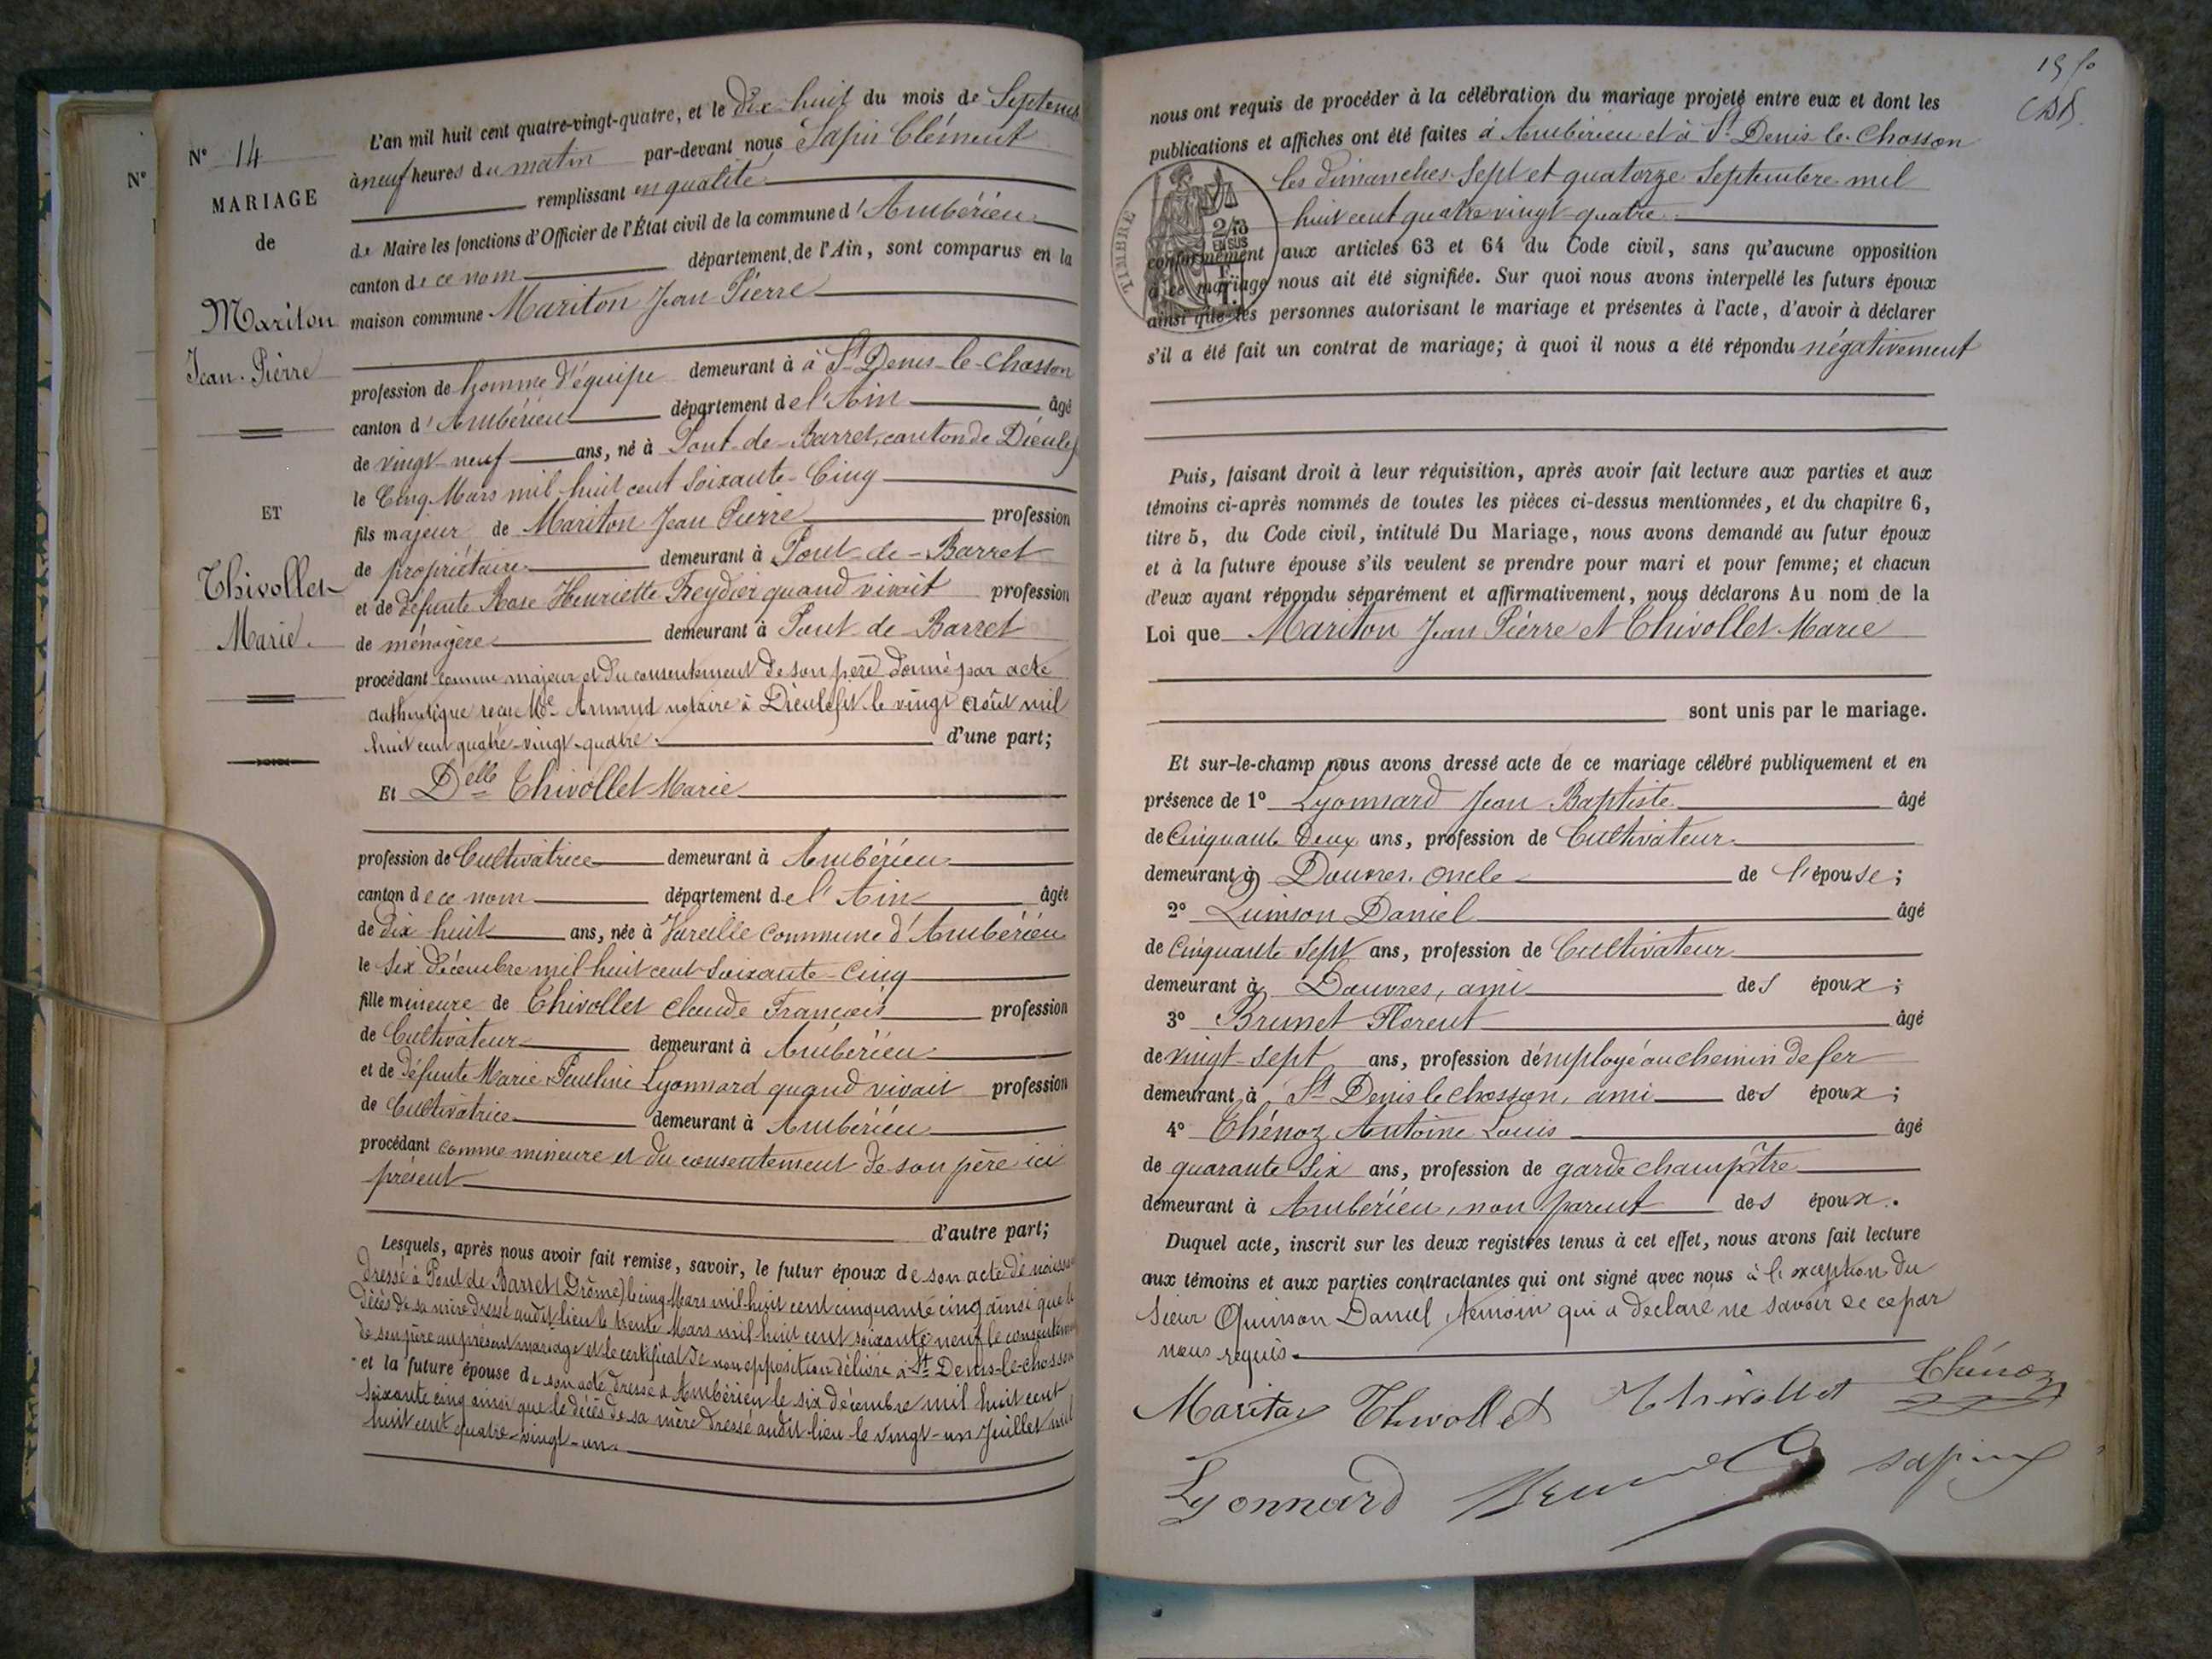 N° 14
MARIAGE
de
Mariton
Jean-Pierre
ET
Thivollet
Marie.
N°
L'an mil huit cent quatre-vingt-quatre, et le dix huit du mois de Septemb
à neuf heures du matin par-devant nous Sapin Clément
remplissant en qualité
de Maire les fonctions d'Officier de l'État civil de la commune d'Ambérieu
canton de ce nom département de l'Ain, sont comparus en la
maison commune Mariton Jean Pierre
profession de homme d'équipe demeurant à à St Denis-le-Chosson
canton d'Ambérieu département de l'Ain âgé
de vingt-neuf ans, né à Pont-de-Barret, canton de Dieulef
le Cinq Mars mil huit cent soixante-Cinq
fils majeur de Mariton Jean Pierre profession
de propriétaire demeurant à Pont-de-Barret
et de défunte Rose Henriette Freydier quand vivait profession
de ménagère demeurant à Pont de Barret
procédant comme majeur et du consentement de son père donné par acte
authentique reçu Me Armand notaire à Dieulefit le vingt août mil
huit cent quatre-vingt-quatre d'une part;
Et Delle Thivollet Marie
profession de Cultivatrice demeurant à Ambérieu
canton de ce nom département de l'Ain âgée
de dix huit ans, née à Vareille commune d'Ambérieu
le six décembre mil huit cent soixante-cinq
fille mineure de Thivollet Claude François profession
de Cultivateur demeurant à Ambérieu
et de défunte Marie Pauline Lyonnard quand vivait profession
de Cultivatrice demeurant à Ambérieu
procédant comme mineure et du consentement de son père ici
présent
d'autre part;
Lesquels, après nous avoir fait remise, savoir, le futur époux de son acte de naissan
dressé à Pont de Barret (Drôme) le cinq Mars mil huit cent cinquante cinq ainsi que le
décès de sa mère dressé audit lieu le trente Mars mil huit cent soixante neuf le consentem
de son père au présent mariage et le certificat de non opposition délivré à St Denis-le-chosson
et la future épouse de son acte dressé à Ambérieu le six décembre mil huit cent
soixante cinq ainsi que le décès de sa mère dressé audit lieu le vingt-un Juillet mil
huit cent quatre-vingt-un
nous ont requis de procéder à la célébration du mariage projeté entre eux et dont les
publications et affiches ont été faites à Ambérieu et à St Denis-le-Chosson
les dimanches Sept et quatorze Septembre mil
huit cent quatre vingt-quatre
conformément aux articles 63 et 64 du Code civil, sans qu'aucune opposition
à ce mariage nous ait été signifiée. Sur quoi nous avons interpellé les futurs époux
ainsi que les personnes autorisant le mariage et présentes à l'acte, d'avoir à déclarer
s'il a été fait un contrat de mariage; à quoi il nous a été répondu négativement
TIMBRE
2/10
EN SUS
Puis, faisant droit à leur réquisition, après avoir fait lecture aux parties et aux
témoins ci-après nommés de toutes les pièces ci-dessus mentionnées, et du chapitre 6,
titre 5, du Code civil, intitulé Du Mariage, nous avons demandé au futur époux
et à la future épouse s'ils veulent se prendre pour mari et pour femme; et chacun
d'eux ayant répondu séparément et affirmativement, nous déclarons Au nom de la
Loi que Mariton Jean Pierre et Thivollet Marie
sont unis par le mariage.
Et sur-le-champ nous avons dressé acte de ce mariage célébré publiquement et en
présence de 1° Lyonnard Jean Baptiste âgé
de Cinquante Deux ans, profession de Cultivateur
demeurant à Douvres. oncle de l'épouse;
2° Quinson Daniel âgé
de Cinquante sept ans, profession de Cultivateur
demeurant à Douvres, ami des époux;
3° Brunet Florent âgé
de vingt-sept ans, profession d'employé au chemin de fer
demeurant à St Denis le chosson, ami des époux;
4° Thénoz Antoine Louis âgé
de quarante six ans, profession de garde champêtre
demeurant à Ambérieu, non parent des époux.
Duquel acte, inscrit sur les deux registres tenus à cet effet, nous avons fait lecture
aux témoins et aux parties contractantes qui ont signé avec nous à l'exception du
Sieur Quinson Daniel témoin qui a déclaré ne savoir de ce par
nous requis.
Mariton Thivollet Thivollet Thénoz
Lyonnard Brunet sapin